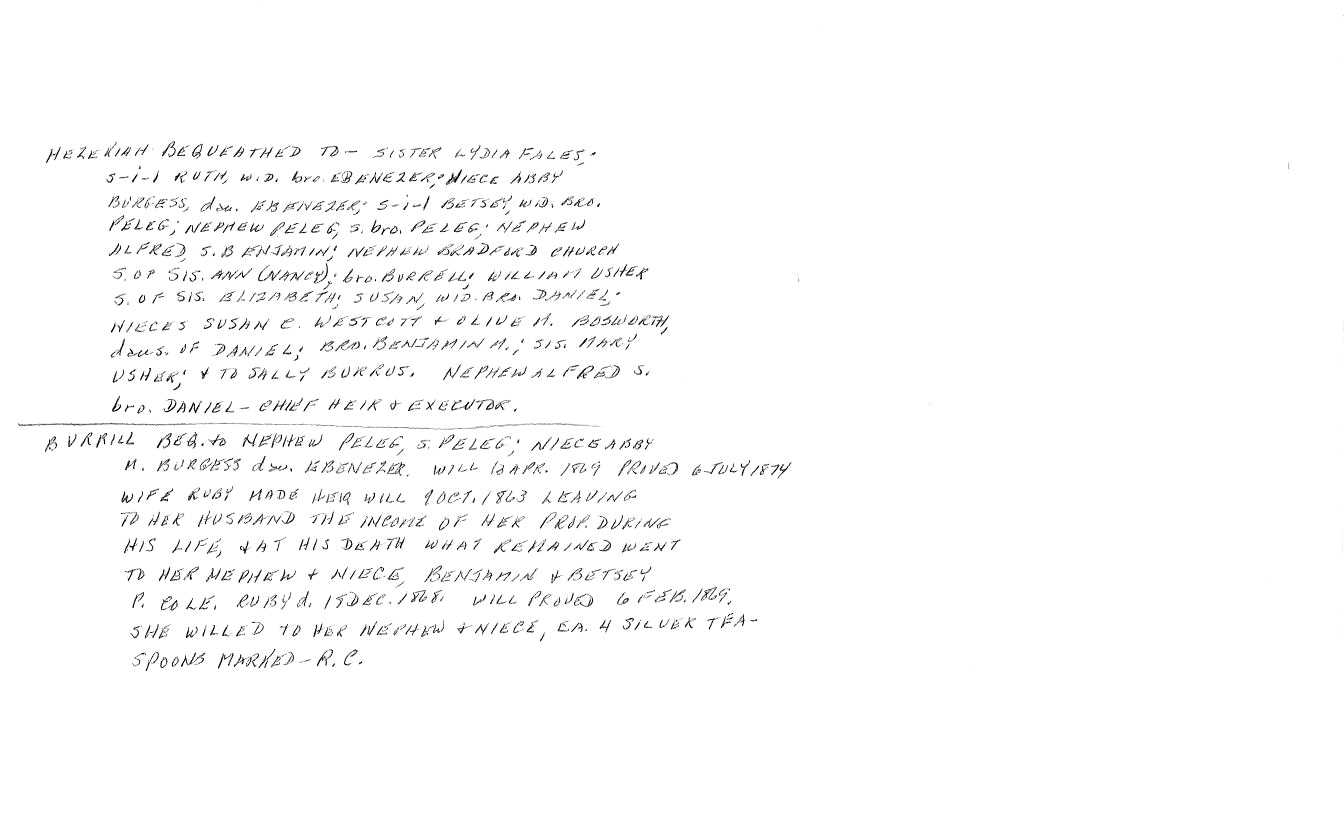 HEZEKIAH BEQUEATHED TO — SISTER LYDIA FALES;
s-i-l RUTH, W.D. bro. EBENEZER; NIECE ABBY
BURGESS, dau. EBENEZER; s-i-l BETSEY, WID. BRO.
PELEG; NEPHEW PELEG, s. bro. PELEG; NEPHEW
ALFRED, S. BENJAMIN; NEPHEW BRADFORD CHURCH
S. OF SIS. ANN (NANCY); bro. BURRELL; WILLIAM USHER
S. OF SIS. ELIZABETH; SUSAN, WID. BRO. DANIEL;
NIECES SUSAN C. WESTCOTT + OLIVE M. BOSWORTH,
daus. OF DANIEL; BRO. BENJAMIN M.; SIS. MARY
USHER; + TO SALLY BURRUS. NEPHEW ALFRED S.
bro. DANIEL — CHIEF HEIR + EXECUTOR.
BURRILL BEQ. to NEPHEW PELEG, S. PELEG; NIECE ABBY
M. BURGESS dau. EBENEZER. WILL APR. 1869 PROVED 6 JULY 1874
WIFE RUBY MADE HER WILL 9 OCT. 1863 LEAVING
TO HER HUSBAND THE INCOME OF HER PROP. DURING
HIS LIFE, + AT HIS DEATH WHAT REMAINED WENT
TO HER NEPHEW + NIECE, BENJAMIN + BETSEY
P. COLE. RUBY d. DEC. 1868. WILL PROVED 6 FEB. 1869.
SHE WILLED TO HER NEPHEW + NIECE, EA. 4 SILVER TEA-
SPOONS MARKED — R.C.